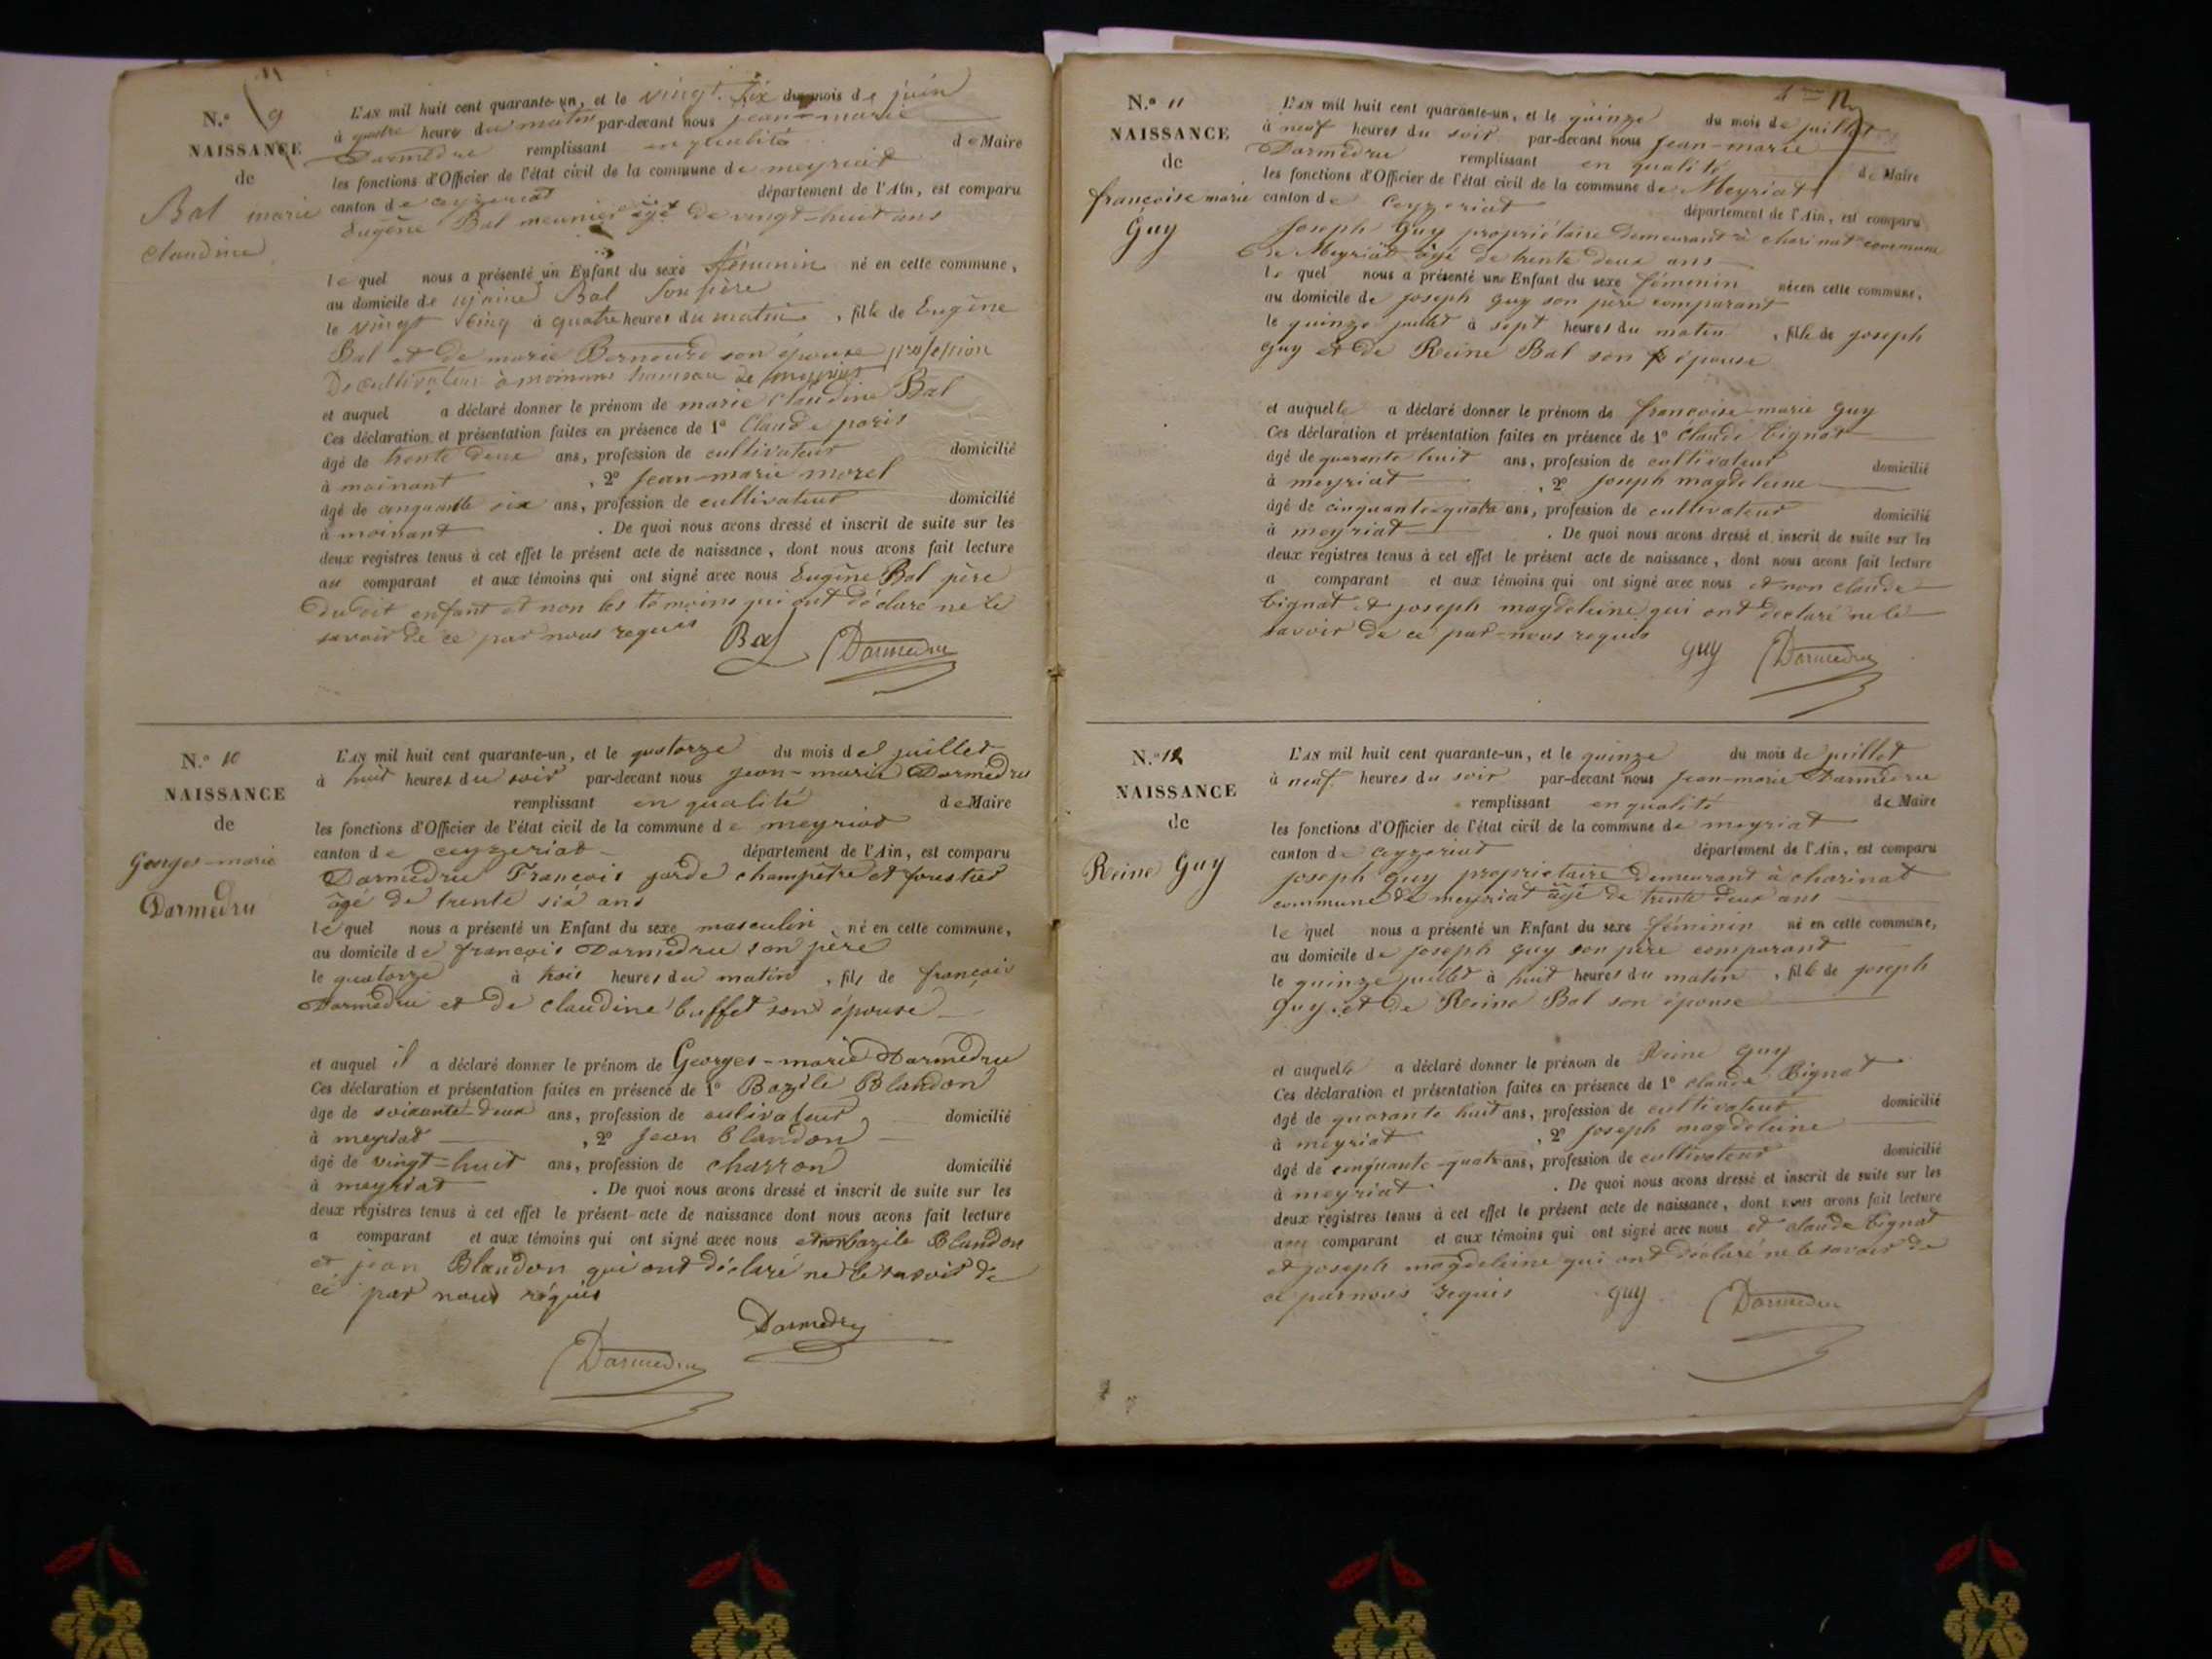 N.º 9
NAISSANCE
de
Bal marie
claudine
L'AN mil huit cent quarante-un, et le vingt six du mois de juin
à quatre heures du matin par-devant nous jean-marie
Darmedru remplissant en qualité de Maire
les fonctions d'Officier de l'état civil de la commune de meyriat
canton de ceyzeriat département de l'Ain, est comparu
Eugène Bal meunier âgé de vingt-huit ans
le quel nous a présenté un Enfant du sexe féminin né en cette commune,
au domicile de Bal son père
le vingt cinq à quatre heures du matin, fille de Eugène
Bal et de marie son épouse profession
De cultivateur à hameau de meyriat
et auquel a déclaré donner le prénom de marie claudine Bal
Ces déclaration et présentation faites en présence de 1º Claude paris
âgé de trente deux ans, profession de cultivateur domicilié
à moinant, 2º Jean-marie morel
âgé de cinquante six ans, profession de cultivateur domicilié
à moinant. De quoi nous avons dressé et inscrit de suite sur les
deux registres tenus à cet effet le présent acte de naissance, dont nous avons fait lecture
au comparant et aux témoins qui ont signé avec nous Eugène Bal père
du dit enfant et non les témoins qui ont déclaré ne le
savoir de ce par nous requis Bal Darmedru
N.º 10
NAISSANCE
de
Georges-marie
Darmedru
L'AN mil huit cent quarante-un, et le quatorze du mois de juillet
à huit heures du soir par-devant nous jean-marie Darmedru
remplissant en qualité de Maire
les fonctions d'Officier de l'état civil de la commune de meyriat
canton de ceyzeriat département de l'Ain, est comparu
Darmedru François garde champêtre et forestier
âgé de trente six ans
le quel nous a présenté un Enfant du sexe masculin né en cette commune,
au domicile de françois Darmedru son père
le quatorze à trois heures du matin, fils de françois
Darmedru et de claudine buffet son épouse
et auquel il a déclaré donner le prénom de Georges-marie Darmedru
Ces déclaration et présentation faites en présence de 1º Bazile Blandon
âgé de soixante-deux ans, profession de cultivateur domicilié
à meyriat, 2º Jean Blandon
âgé de vingt-huit ans, profession de charron domicilié
à meyriat. De quoi nous avons dressé et inscrit de suite sur les
deux registres tenus à cet effet le présent acte de naissance dont nous avons fait lecture
a comparant et aux témoins qui ont signé avec nous et non bazile Blandon
et jean Blandon qui ont déclaré ne le savoir de
ce par nous réquis
Darmedru
Darmedru
12
N.º 11
NAISSANCE
de
françoise marie
Guy
L'AN mil huit cent quarante-un, et le quinze du mois de juillet
à neuf heures du soir par-devant nous Jean-marie
Darmedru remplissant en qualité de Maire
les fonctions d'Officier de l'état civil de la commune de Meyriat
canton de Ceyzeriat département de l'Ain, est comparu
Joseph Guy propriétaire demeurant à charinat commune
De Meyriat âgé de trente deux ans
le quel nous a présenté une Enfant du sexe féminin née en cette commune,
au domicile de joseph guy son père comparant
le quinze juillet à sept heures du matin, fille de joseph
guy et de Reine Bal son épouse
et auquelle a déclaré donner le prénom de françoise marie guy
Ces déclaration et présentation faites en présence de 1º Claude bignat
âgé de quarante huit ans, profession de cultivateur domicilié
à meyriat, 2º Joseph magdeleine
âgé de cinquante quatre ans, profession de cultivateur domicilié
à meyriat. De quoi nous avons dressé et inscrit de suite sur les
deux registres tenus à cet effet le présent acte de naissance, dont nous avons fait lecture
a comparant et aux témoins qui ont signé avec nous et non claude
bignat et joseph magdeleine qui ont déclaré ne le
savoir de ce par-nous requis guy Darmedru
N.º 12
NAISSANCE
de
Reine Guy
L'AN mil huit cent quarante-un, et le quinze du mois de juillet
à neuf heures du soir par-devant nous Jean-marie Darmedru
remplissant en qualité de Maire
les fonctions d'Officier de l'état civil de la commune de meyriat
canton de Ceyzeriat département de l'Ain, est comparu
joseph guy propriétaire demeurant à charinat
commune de meyriat âgé de trente deux ans
le quel nous a présenté un Enfant du sexe féminin né en cette commune,
au domicile de joseph guy son père comparant
le quinze juillet à huit heures du matin, fille de joseph
guy et de Reine Bal son épouse
et auquelle a déclaré donner le prénom de Reine guy
Ces déclaration et présentation faites en présence de 1º claude Bignat
âgé de quarante huit ans, profession de cultivateur domicilié
à meyriat, 2º Joseph magdeleine
âgé de cinquante-quatre ans, profession de cultivateur domicilié
à meyriat. De quoi nous avons dressé et inscrit de suite sur les
deux registres tenus à cet effet le présent acte de naissance, dont nous avons fait lecture
comparant et aux témoins qui ont signé avec nous et claude bignat
et joseph magdeleine qui ont déclaré ne le savoir de
ce par nous requis guy Darmedru